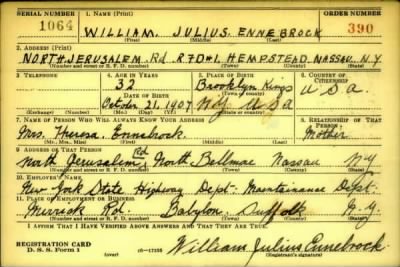 SERIAL NUMBER 1. NAME (Print) ORDER NUMBER
1064 WILLIAM. JULIUS. ENNEBROCK 390
(First) (Middle) (Last)
2. ADDRESS (Print)
NORTH. JERUSALEM. Rd. R7D#1. HEMPSTEAD. NASSAU. N.Y
(Number and street or R. F. D. number) (Town) (County) (State)
3. TELEPHONE 4. AGE IN YEARS 5. PLACE OF BIRTH 6. COUNTRY OF CITIZENSHIP
32 Brooklyn Kings U S a.
DATE OF BIRTH (Town) (County)
October 21, 1907 N.Y U S a
(Exchange) (Number) (Mo.) (Day) (Yr.) (State) (Country)
7. NAME OF PERSON WHO WILL ALWAYS KNOW YOUR ADDRESS 8. RELATIONSHIP OF THAT PERSON
Mrs. Theresa. Ennebrock. Mother
(Mr., Mrs., Miss) (First) (Middle) (Last)
9. ADDRESS OF THAT PERSON
North Jerusalem Rd North Bellmore Nassau N-y
(Number and street or R. F. D. number) (Town) (County) (State)
10. EMPLOYER'S NAME
New York State Highway Dept- Maintenance Dept.
11. PLACE OF EMPLOYMENT OR BUSINESS
Merrick Rd. Babylon. Suffolk N-y
(Number and street or R. F. D. number) (Town) (County) (State)
I AFFIRM THAT I HAVE VERIFIED ABOVE ANSWERS AND THAT THEY ARE TRUE.
REGISTRATION CARD
D. S. S. Form 1 (over) 16—17105 William Julius Ennebrock.